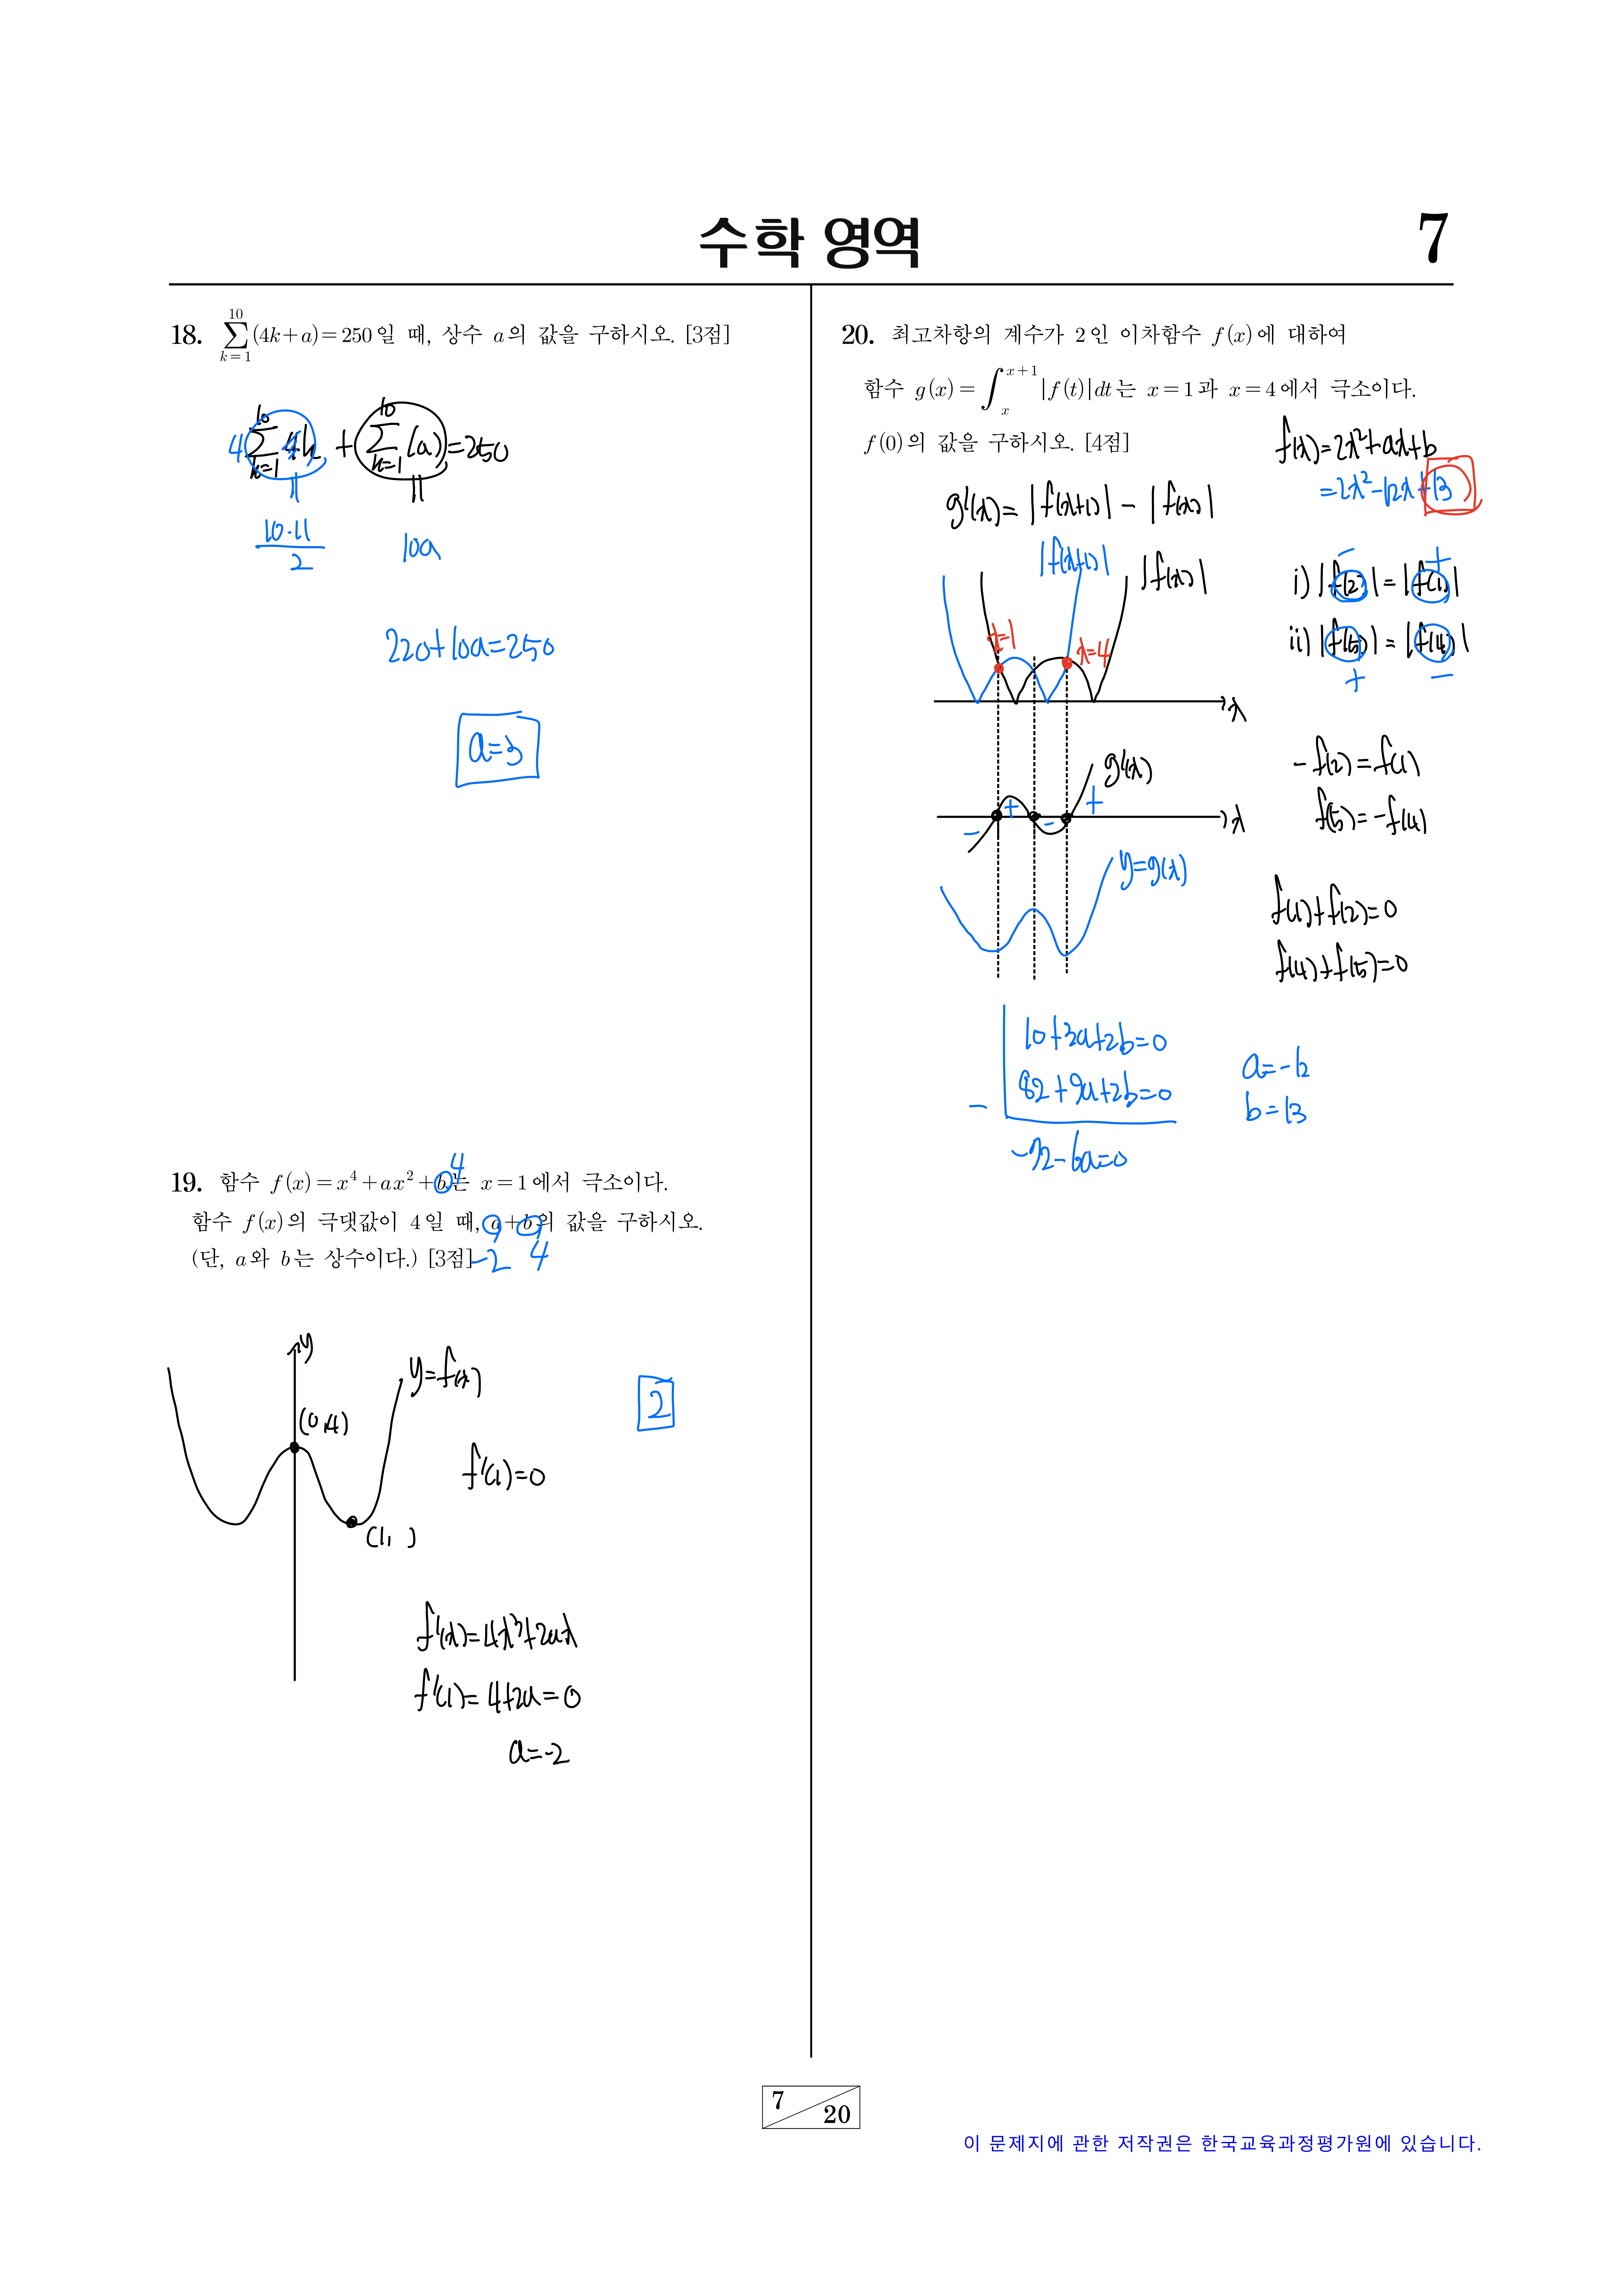 수학 영역
7
18. \sum_{k=1}^{10}(4k+a)=250일 때, 상수 a의 값을 구하시오. [3점]
4\sum_{k=1}^{10} k + \sum_{k=1}^{10}(a)=250
\frac{10·11}{2}
10a
220+10a=250
a=3
19. 함수 f(x)=x^4+ax^2+b는 x=1에서 극소이다.
4
함수 f(x)의 극댓값이 4일 때, a+b의 값을 구하시오.
(단, a와 b는 상수이다.) [3점]
-2 4
y
y=f(x)
(0,4)
(1, )
f'(1)=0
2
f'(x)=4x^3+2ax
f'(1)=4+2a=0
a=-2
20. 최고차항의 계수가 2인 이차함수 f(x)에 대하여
함수 g(x)=\int_{x}^{x+1}|f(t)|dt는 x=1과 x=4에서 극소이다.
f(0)의 값을 구하시오. [4점]
f(x)=2x^2+ax+b
=2x^2-12x+13
g'(x)=|f(x+1)|-|f(x)|
|f(x+1)|
|f(x)|
x=1
x=4
x
- +
i) |f(2)|=|f(1)|
ii) |f(5)|=|f(4)|
+ -
g'(x)
- + - +
x
y=g(x)
-f(2)=f(1)
f(5)=-f(4)
f(1)+f(2)=0
f(4)+f(5)=0
10+3a+2b=0
- 82+9a+2b=0
-72-6a=0
a=-12
b=13
7
20
이 문제지에 관한 저작권은 한국교육과정평가원에 있습니다.